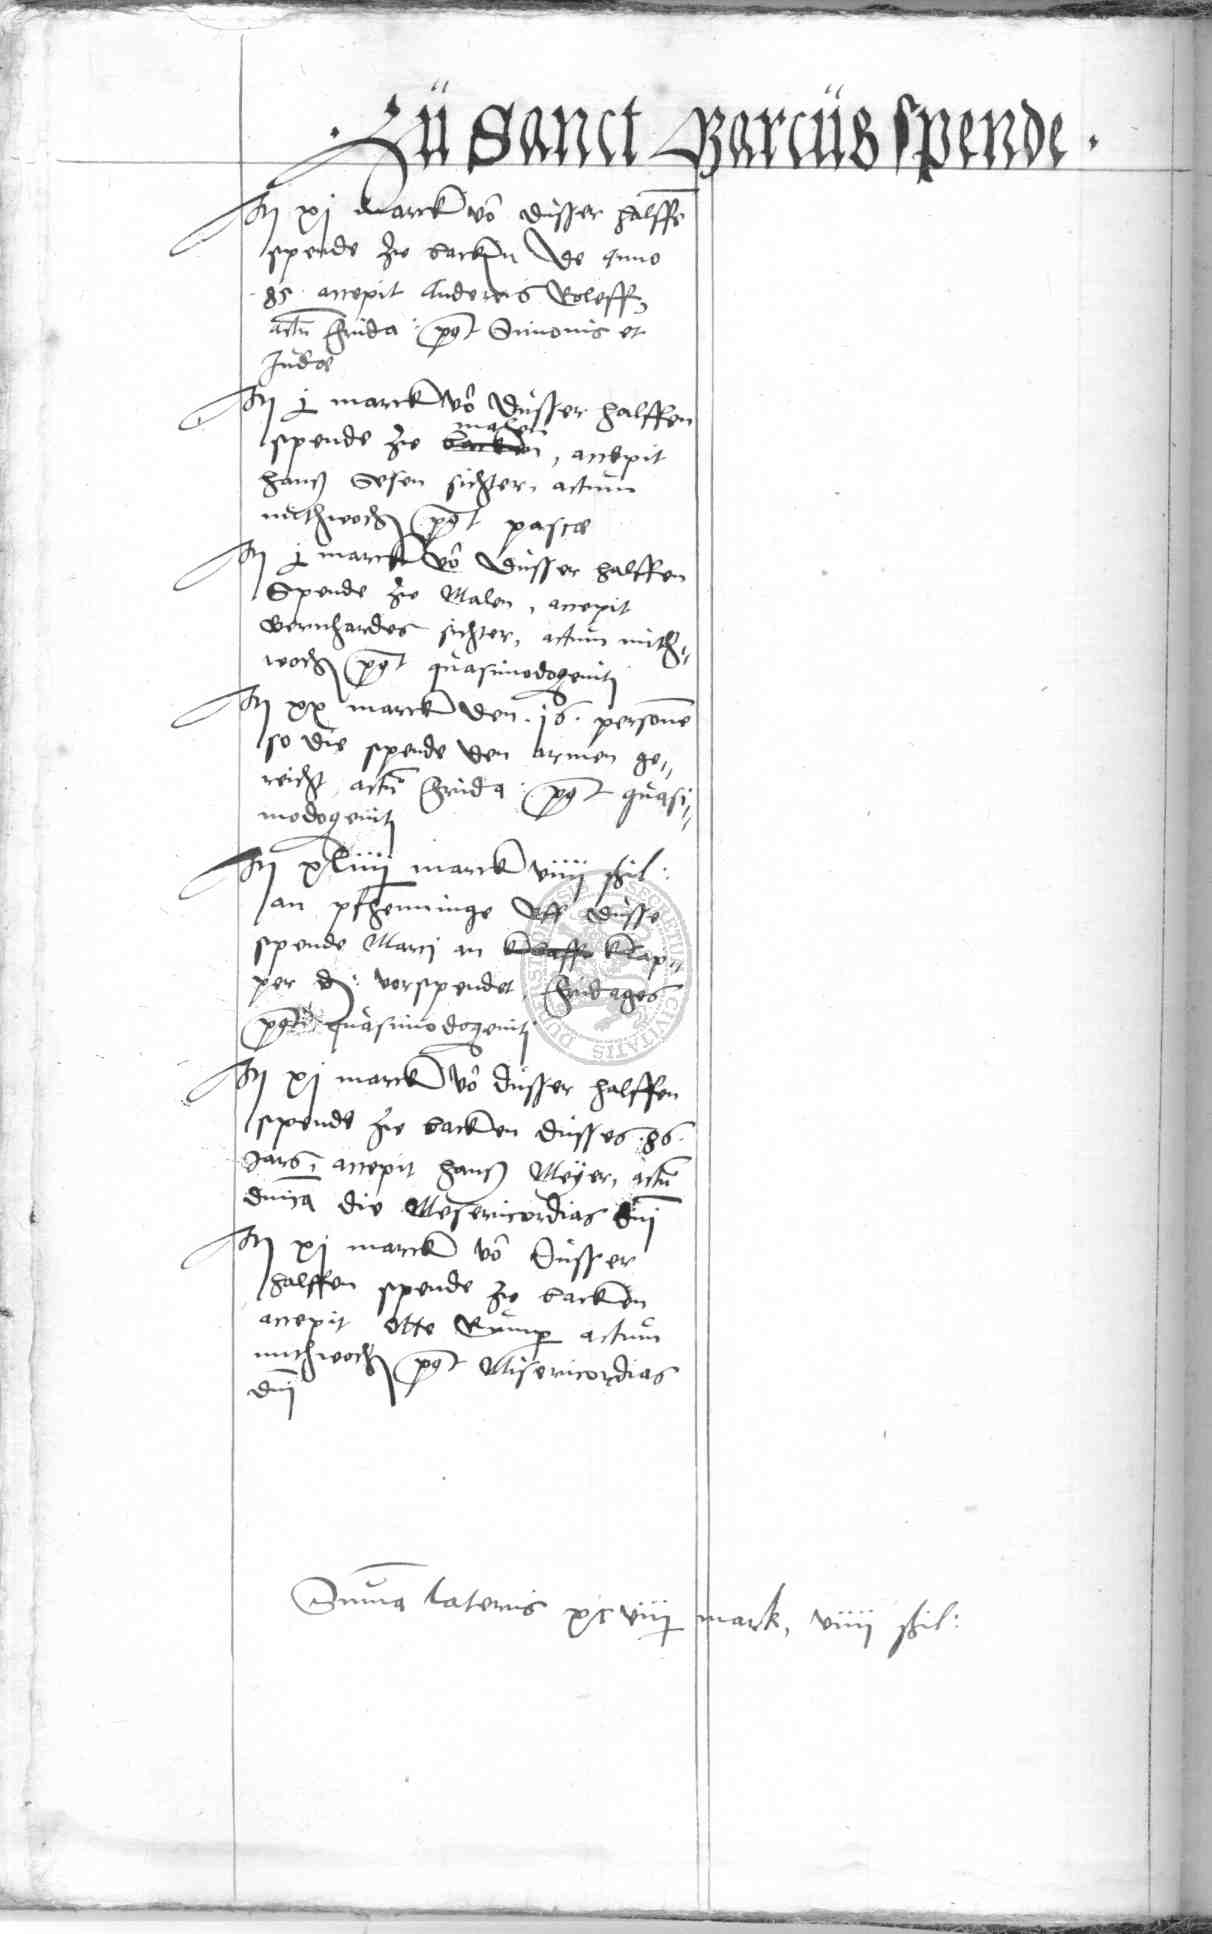 · Zü Sanct Marcüs spende ·
It xj marck vō düsser halffē
spende zie backen de Anno
85 accepit Anderes Roleffs
actū frida: post Simonis et
Jude
It j marck vō düsser halffen
malen
spende zie backen, accepit
hans Sesen sichter, actum
mithwoch post pasce
It j marck vō düsser halffen
Spende zie Malen, accepit
Bernhardes sichter, actum mith„
woch post quasimodogeniti
It xx marck den .16. persone
so die spende den armen ge„
reicht actū frida: post quasi„
modogeniti
It xliiij marck viiij shil:
an pfhenninge uff düsse
spende Marci an klap„
per d: verspendet, fridages
post quasimodogeniti
It xj marck vō düsser halffen
spende zie backen düsses .86.
Jars, accepit hans Meÿer, actū
dnica die Mesericordias dnj
It xj marck vō düsser
halffen spende zie backen
accepit Otte actum
mithwoch post Misericordias
dnj
Suma lateris xcviij mark, viiij shil:
SECRETUM CIVITATIS